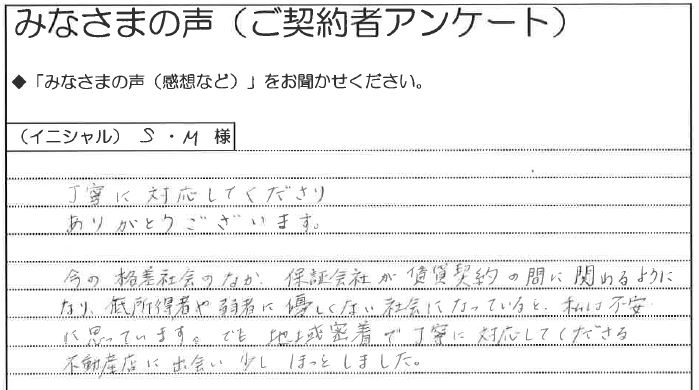 みなさまの声（ご契約者アンケート）
◆「みなさまの声（感想など）」をお聞かせください。
（イニシャル） S ・ M 様
丁寧に対応してくださり
ありがとうございます。
今の格差社会のなか、保証会社が賃貸契約の間に関わるように
なり、低所得者や弱者に優しくない社会になっていると、私は不安
に思っています。でも 地域密着で丁寧に対応してくださる
不動産店に出会い少し ほっとしました。